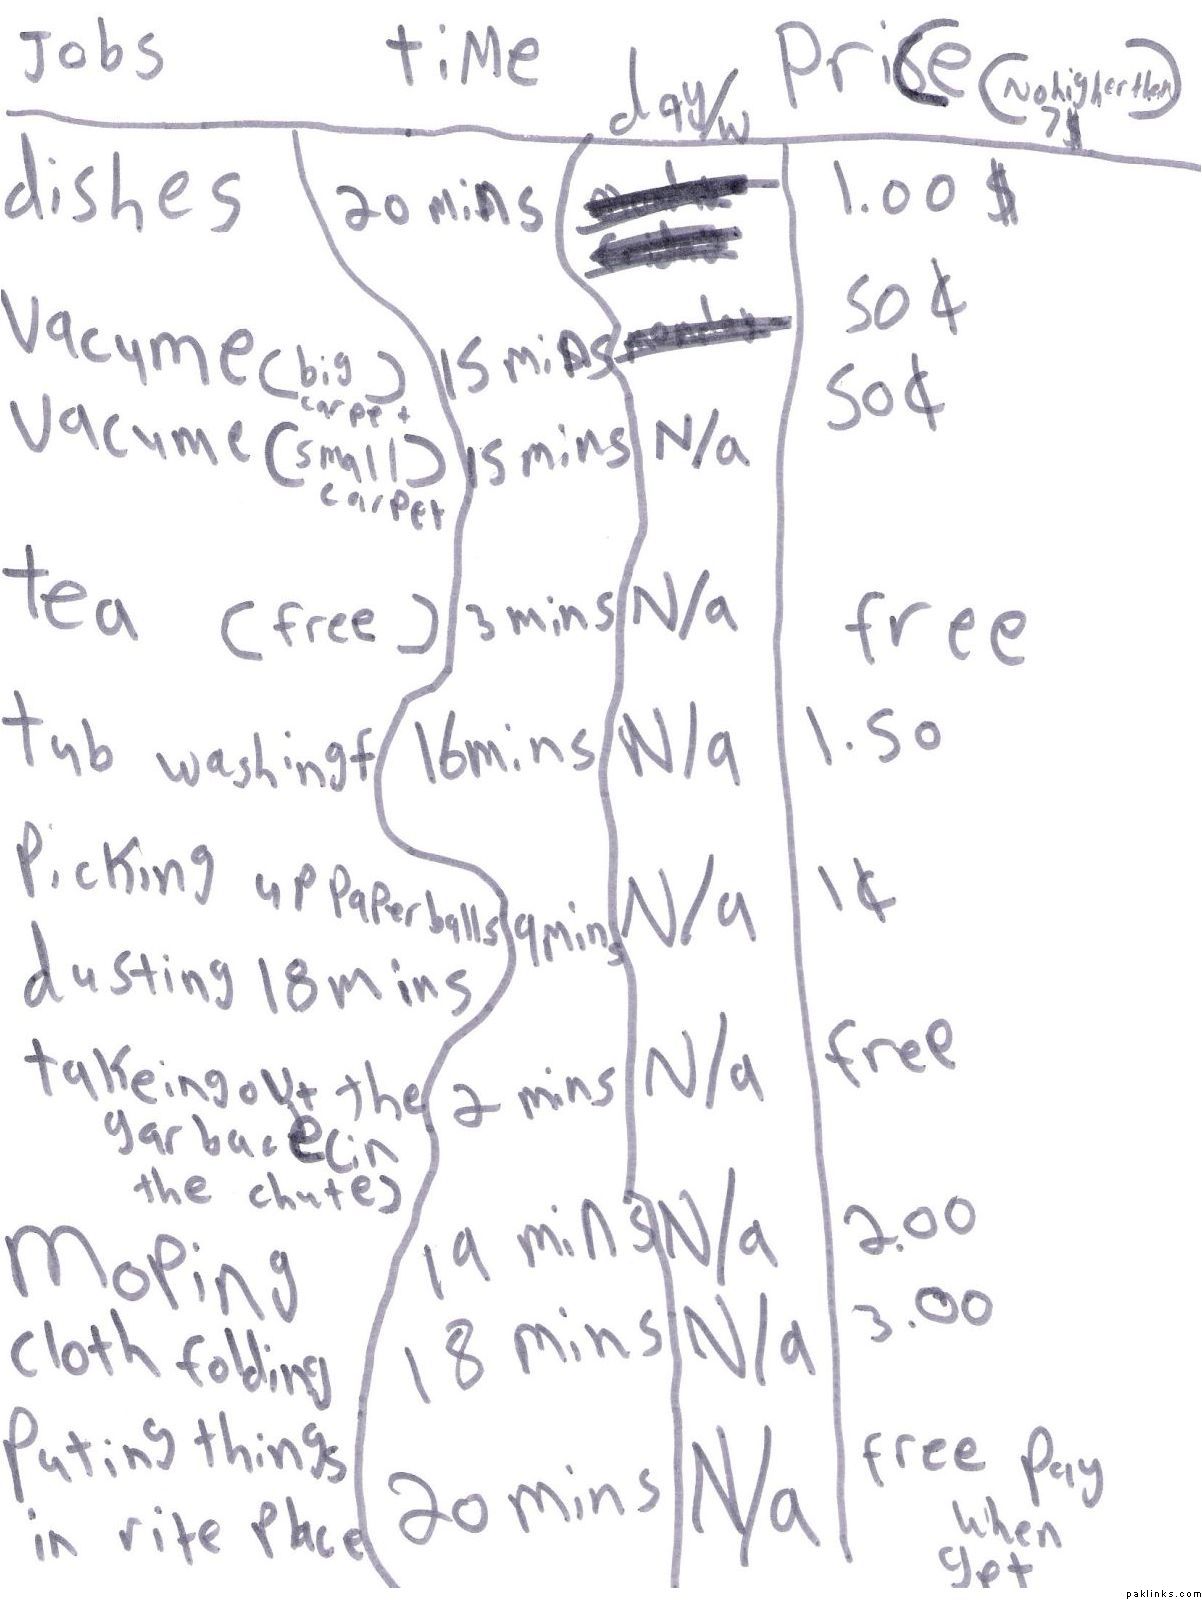 Jobs time day/w Price (No higher then 7$)
dishes 20 mins 1.00 $
Vacyme (big carpet) 15 mins 50¢
Vacyme (small carpet) 15 mins N/a 50¢
tea (free) 3 mins N/a free
tub washingf 16 mins N/a 1.50
Picking up Paper balls 9 mins N/a 1¢
dusting 18 mins
takeing out the 2 mins N/a free
garbace (in
the chute)
Moping 19 mins N/a 2.00
cloth folding 18 mins N/a 3.00
Puting things 20 mins N/a free pay
in rite place when
get
paklinks.com